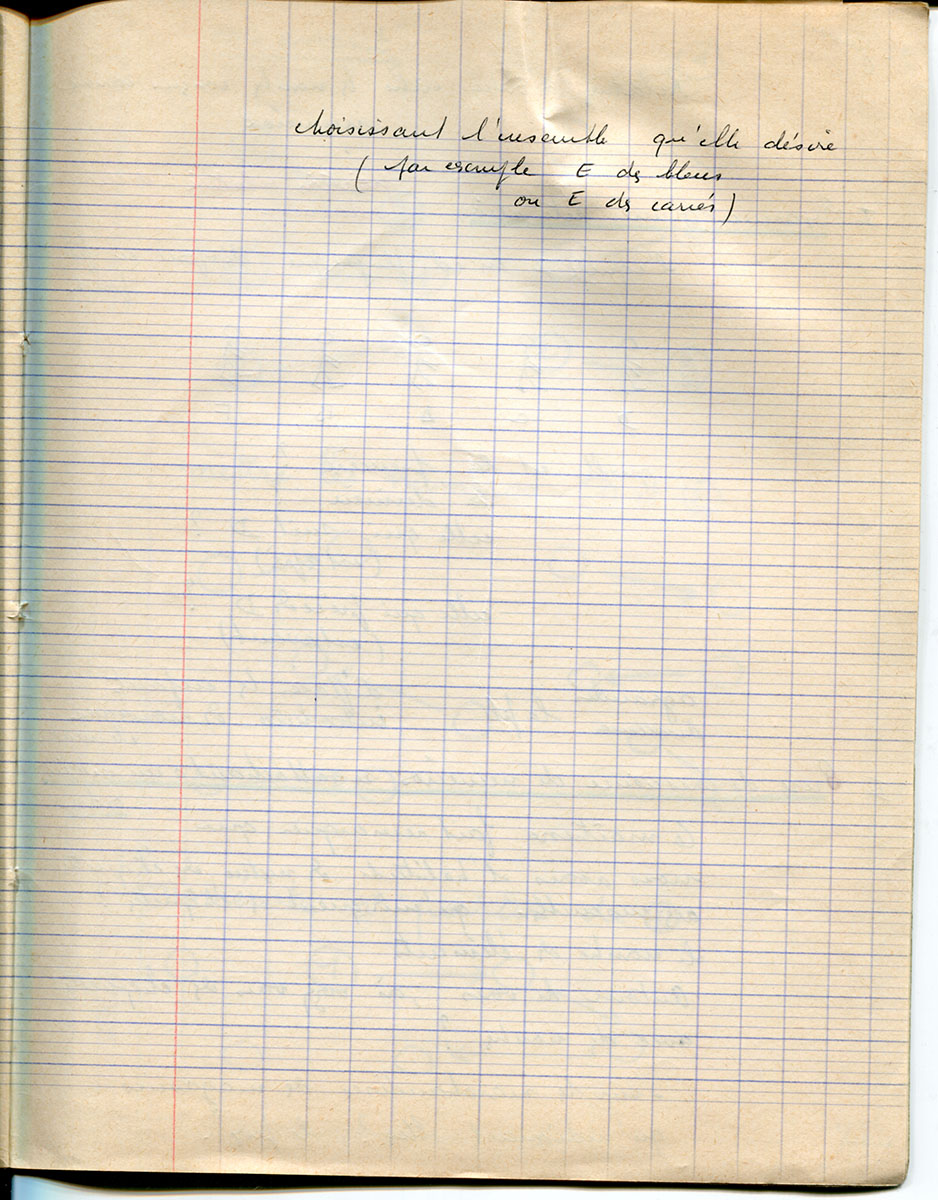 choisissant l'ensemble qu'elle désire
( par exemple E des bleus
ou E des carrés)